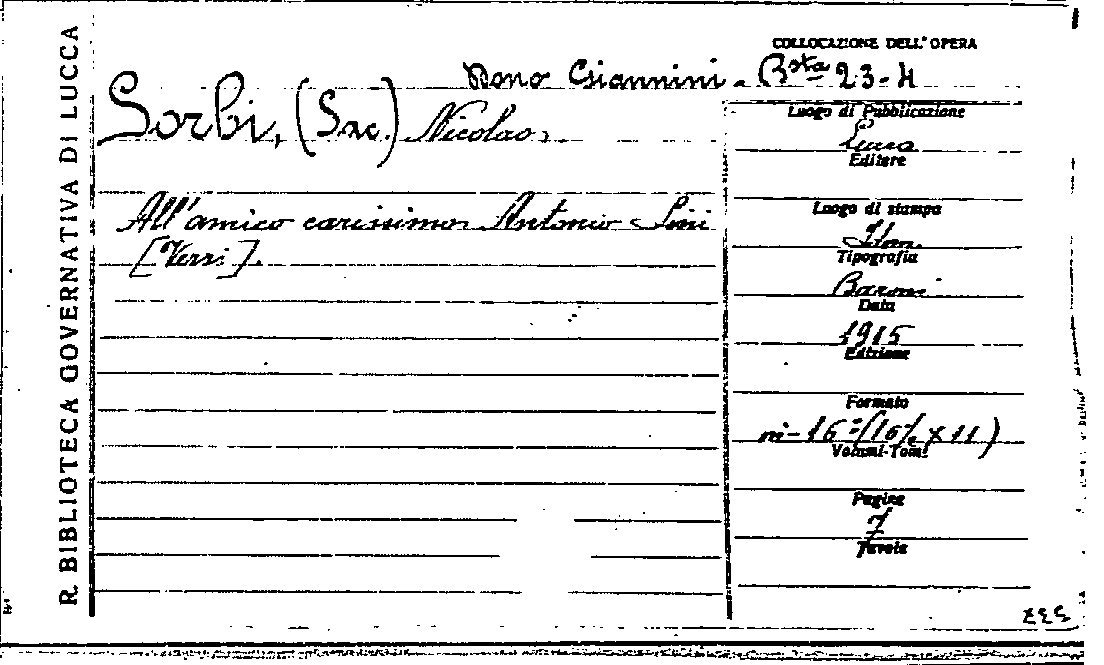 R. BIBLIOTECA GOVERNATIVA DI LUCCA
COLLOCAZIONE DELL' OPERA
Dono Giannini - Bsta 23-4
Sorbi, (Sac.) Nicolao.
All'amico carissimo Antonio Lini
[Versi].
Luogo di Pubblicazione
Lucca
Editore
Luogo di stampa
Tipografia
Baroni
Data
1915
Edizione
Formato
in-16° (16½ x 11)
Volumi-Tomi
Pagine
7
Tavole
337